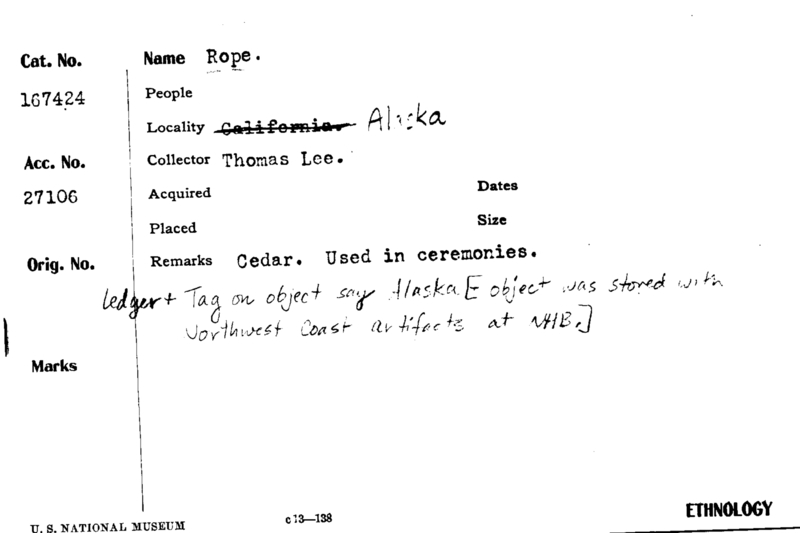 Cat. No. Name Rope.
167424 People
Locality California. Alaska
Acc. No. Collector Thomas Lee.
27106 Acquired Dates
Placed Size
Orig. No. Remarks Cedar. Used in ceremonies.
ledger + Tag on object say Alaska [ object was stored with
Northwest Coast artifacts at NHB.]
Marks
U. S. NATIONAL MUSEUM c13—138 ETHNOLOGY